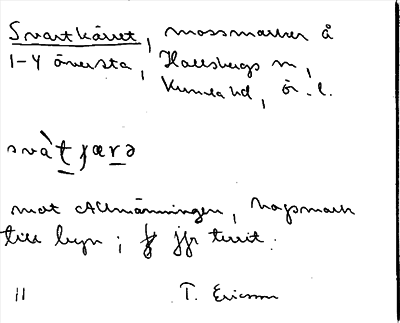 Svartkärret, mossmarker å
1-4 Översta, Hallsbergs sn,
Kumla hd, ör. l.
svàtɟærə
mot Allmänningen, hagmark
till byn; jfr territ.
11
T. Ericsson